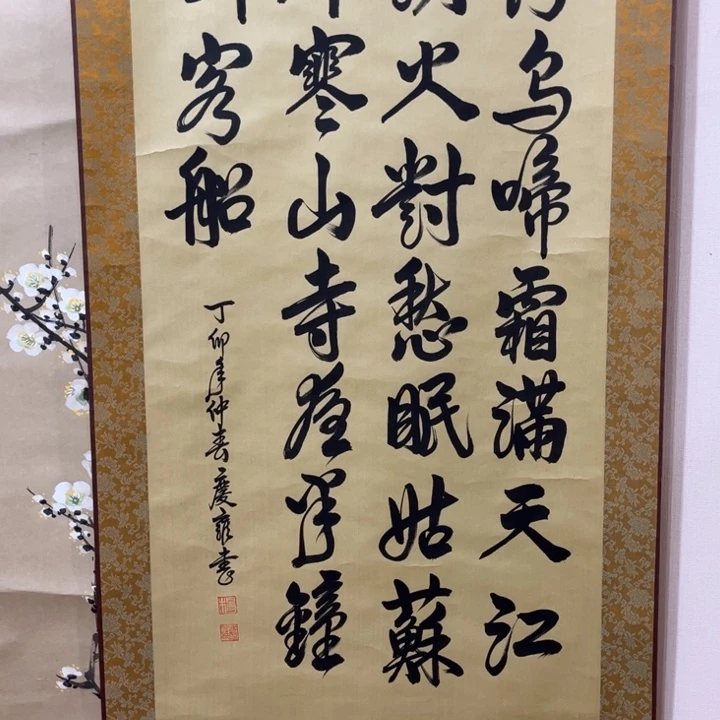 烏啼霜滿天江
火對愁眠姑蘇
寒山寺夜半鐘
客船
丁卯年仲春慶雍書